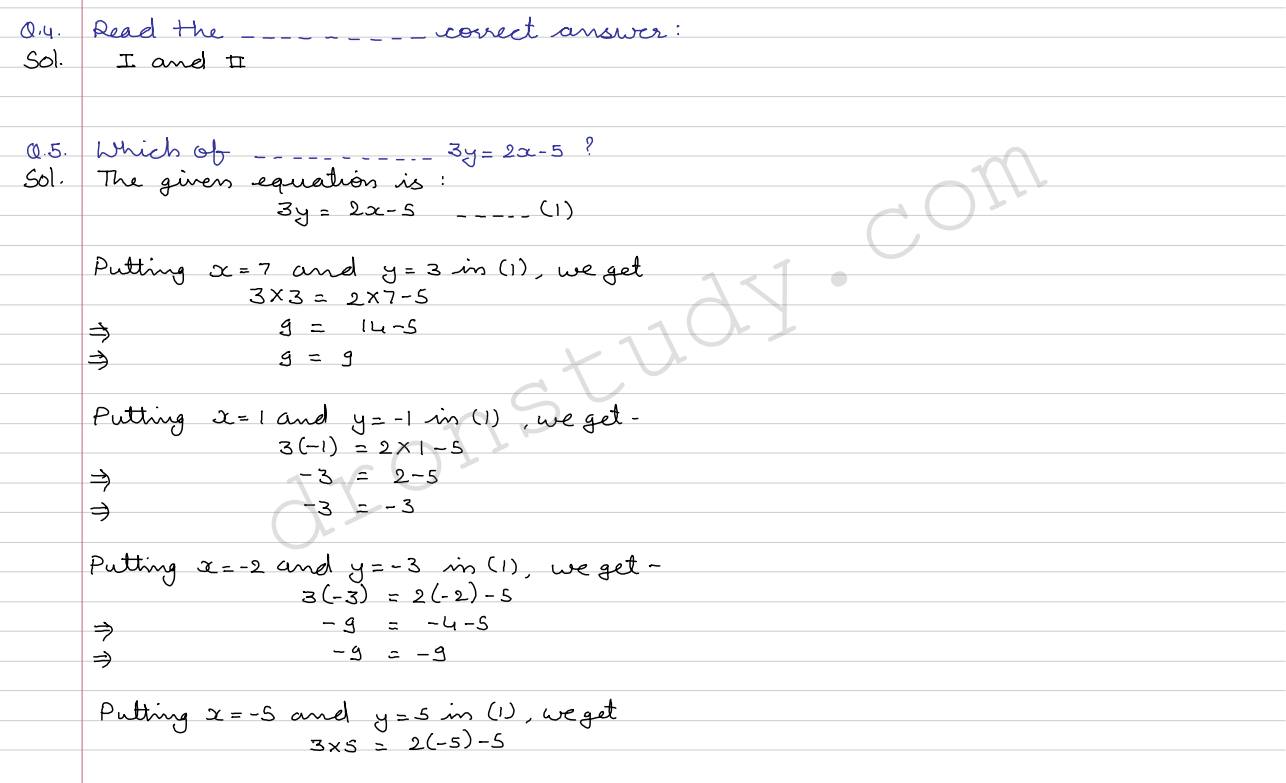 Q.4. Read the _ _ _ _ _ _ _ _ _ correct answer:
Sol. I and II
Q.5. Which of _ _ _ _ _ _ _ _ _ _ _ 3y = 2x-5 ?
Sol. The given equation is :
3y = 2x-5 _ _ _ _ _ (1)
Putting x = 7 and y = 3 in (1), we get
3×3 = 2×7-5
⇒ 9 = 14-5
⇒ 9 = 9
Putting x = 1 and y = -1 in (1), we get -
3(-1) = 2×1-5
⇒ -3 = 2-5
⇒ -3 = -3
Putting x = -2 and y = -3 in (1), we get -
3(-3) = 2(-2)-5
⇒ -9 = -4-5
⇒ -9 = -9
Putting x = -5 and y = 5 in (1), we get
3×5 = 2(-5)-5
dronstudy.com